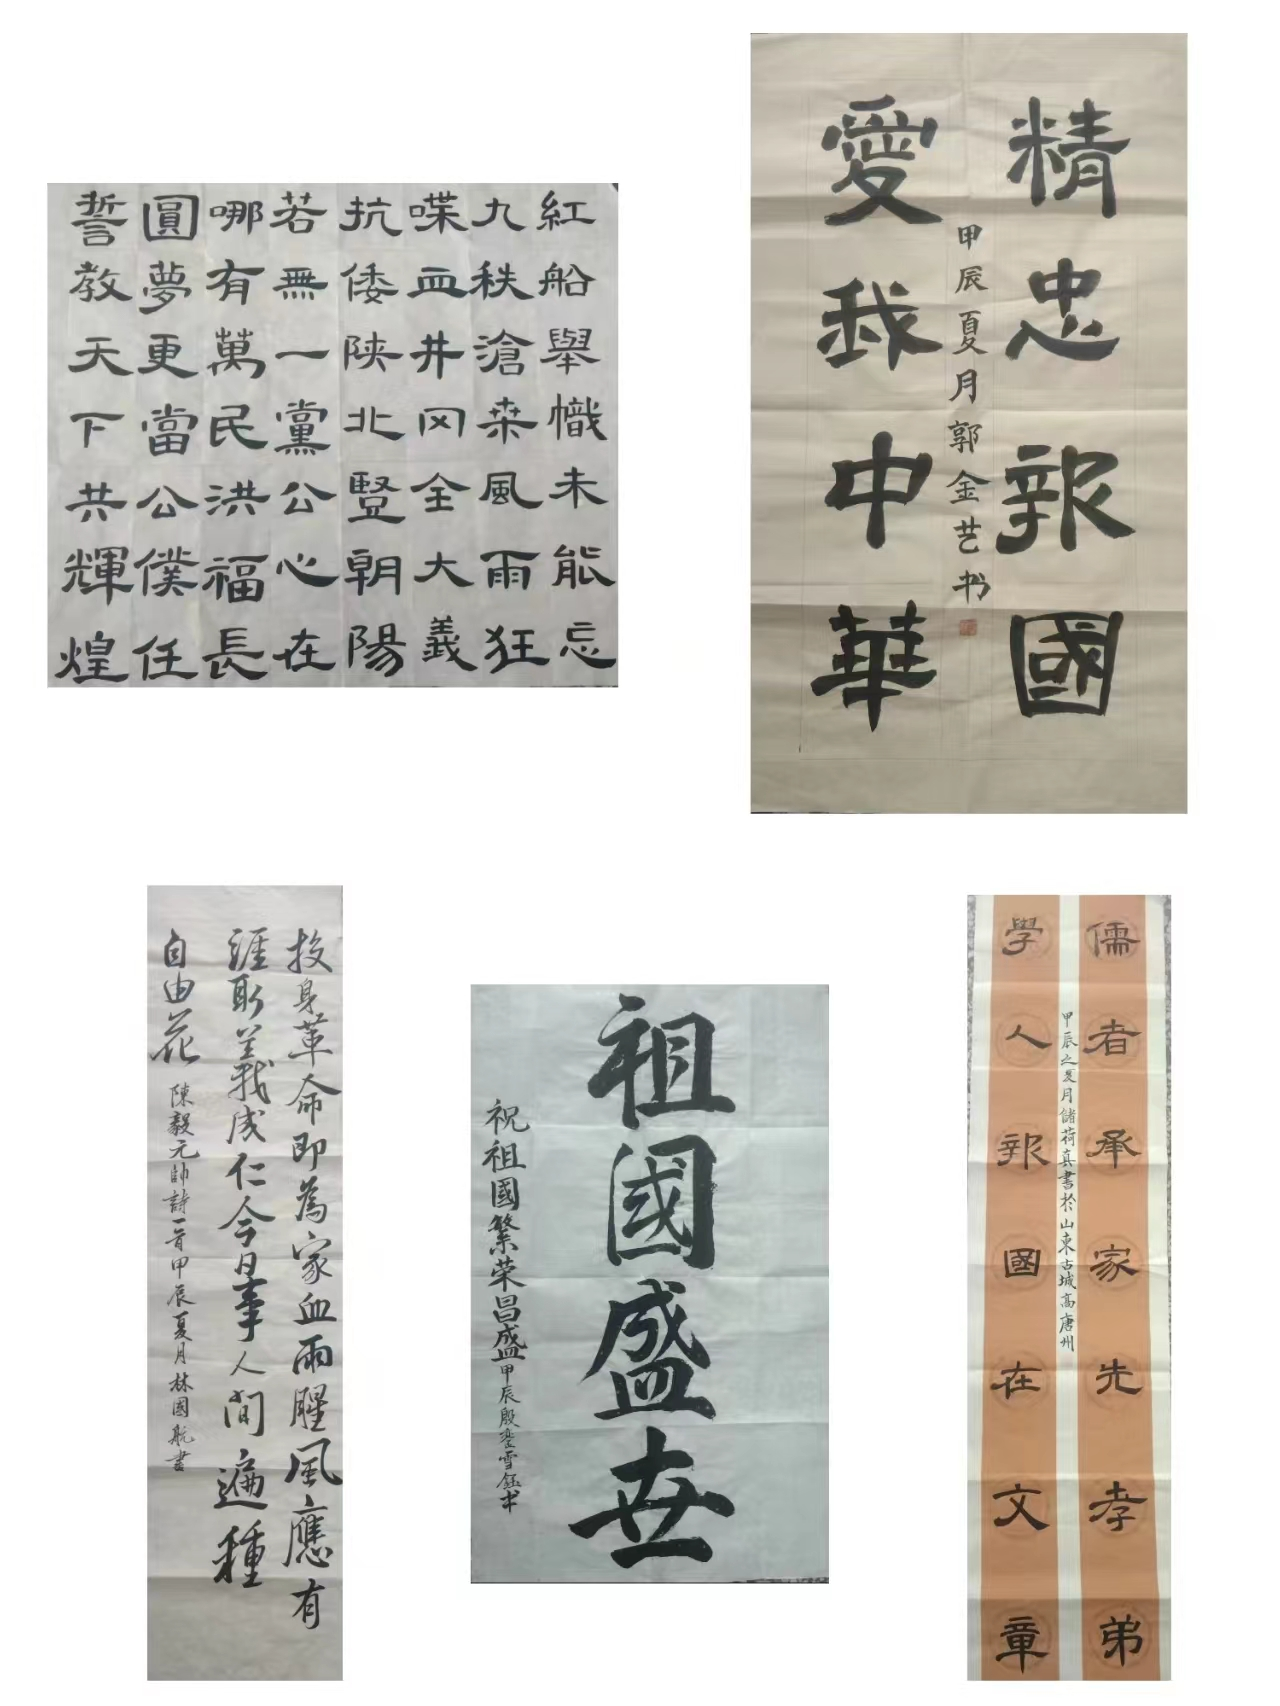 紅船舉幟未能忘
九秩滄桒風雨狂
喋血井冈全大義
抗倭陕北豎朝陽
若無一黨公心在
哪有萬民洪福長
圓夢更當公僕任
誓教天下共輝煌
精忠報國
愛我中華
甲辰夏月郭金艺书
投身革命即為家血雨腥風應有
涯取義成仁今日事人间遍種
自由花
陳毅元帥詩一首甲辰夏月林國航書
祖國盛世
祝祖國繁荣昌盛
甲辰殷雪鈺书
儒者承家先孝弟
學人報國在文章
甲辰之夏月儲荷真書於山東古城高唐州